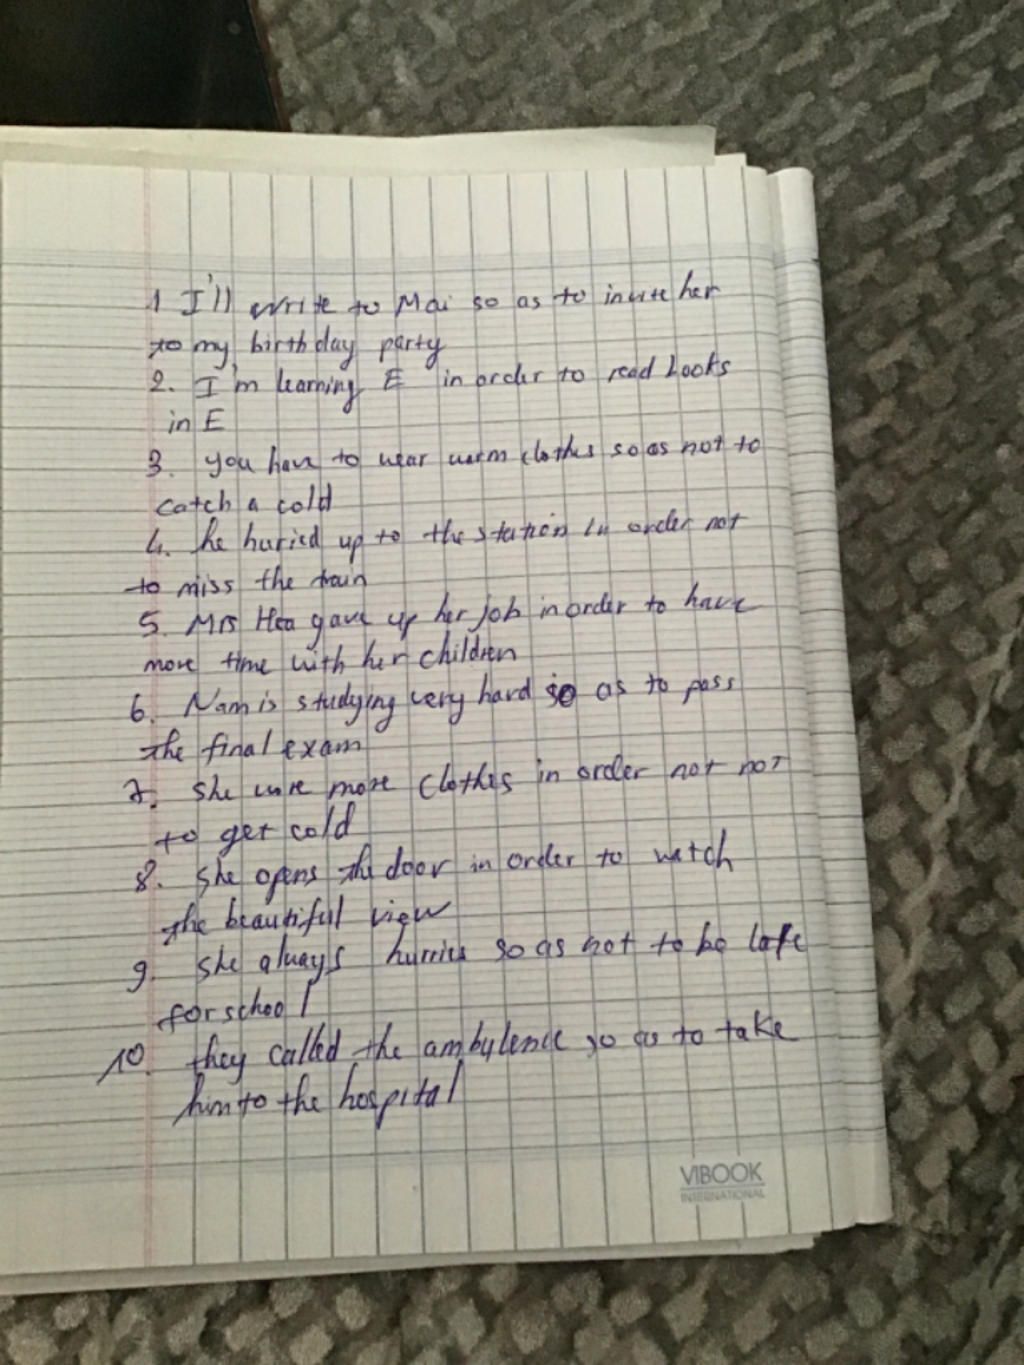 1 I'll write to Mai so as to invite her
to my birthday party
2. I'm learning E in order to read books
in E
3. you have to wear warm clothes so as not to
catch a cold
4. he huried up to the station in order not
to miss the train
5. Mrs Hoa gave up her job in order to have
more time with her children
6. Nam is studying very hard so as to pass
the final exam
7. she wore more clothes in order not not
to get cold
8. she opens the door in order to watch
the beautiful view
9. she always hurries so as not to be late
for school
10. they called the ambulence so as to take
him to the hospital
VIBOOK
INTERNATIONAL